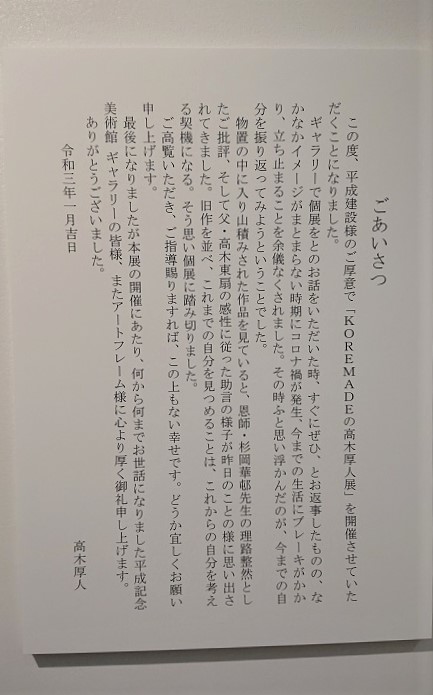 ごあいさつ
この度、平成建設様のご厚意で「KOREMADEの高木厚人展」を開催させていた
だくことになりました。
ギャラリーで個展をとのお話をいただいた時、すぐにぜひ、とお返事したものの、な
かなかイメージがまとまらない時期にコロナ禍が発生、今までの生活にブレーキがかか
り、立ち止まることを余儀なくされました。その時ふと思い浮かんだのが、今までの自
分を振り返ってみようということでした。
物置の中に入り山積みされた作品を見ていると、恩師・杉岡華邨先生の理路整然とし
たご批評、そして父・高木東扇の感性に従った助言の様子が昨日のことの様に思い出さ
れてきました。旧作を並べ、これまでの自分を見つめることは、これからの自分を考え
る契機になる。そう思い個展に踏み切りました。
ご高覧いただき、ご指導賜りますれば、この上もない幸せです。どうか宜しくお願い
申し上げます。
最後になりましたが本展の開催にあたり、何から何までお世話になりました平成記念
美術館 ギャラリーの皆様、またアートフレーム様に心より厚く御礼申し上げます。
ありがとうございました。
令和三年一月吉日
高木厚人